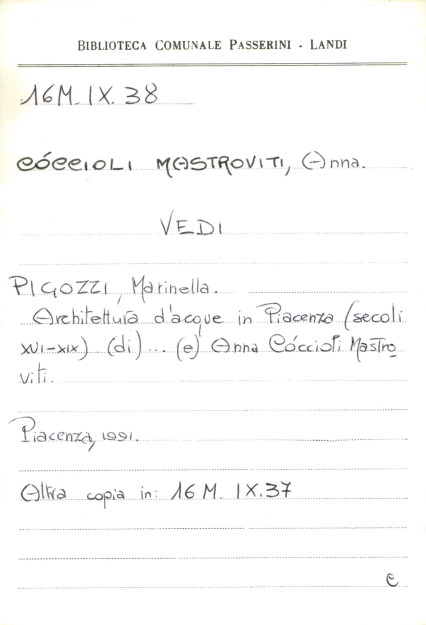 BIBLIOTECA COMUNALE PASSERINI - LANDI
16M. IX. 38
CÓCCIOLI MASTROVITI, Anna.
VEDI
PIGOZZI, Marinella.
Architettura d'acque in Piacenza (secoli
XVI-XIX) (di) ... (e) Anna Cóccioli Mastro
viti.
Piacenza, 1991.
Altra copia in: 16 M. IX.37
e